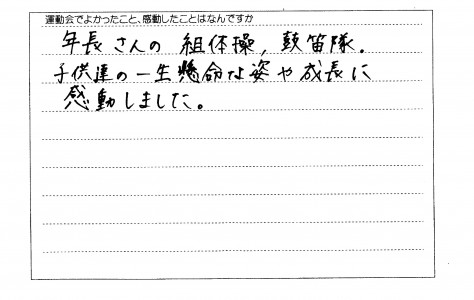 運動会でよかったこと、感動したことはなんですか
年長さんの組体操，鼓笛隊．
子供達の一生懸命な姿や成長に
感動しました。